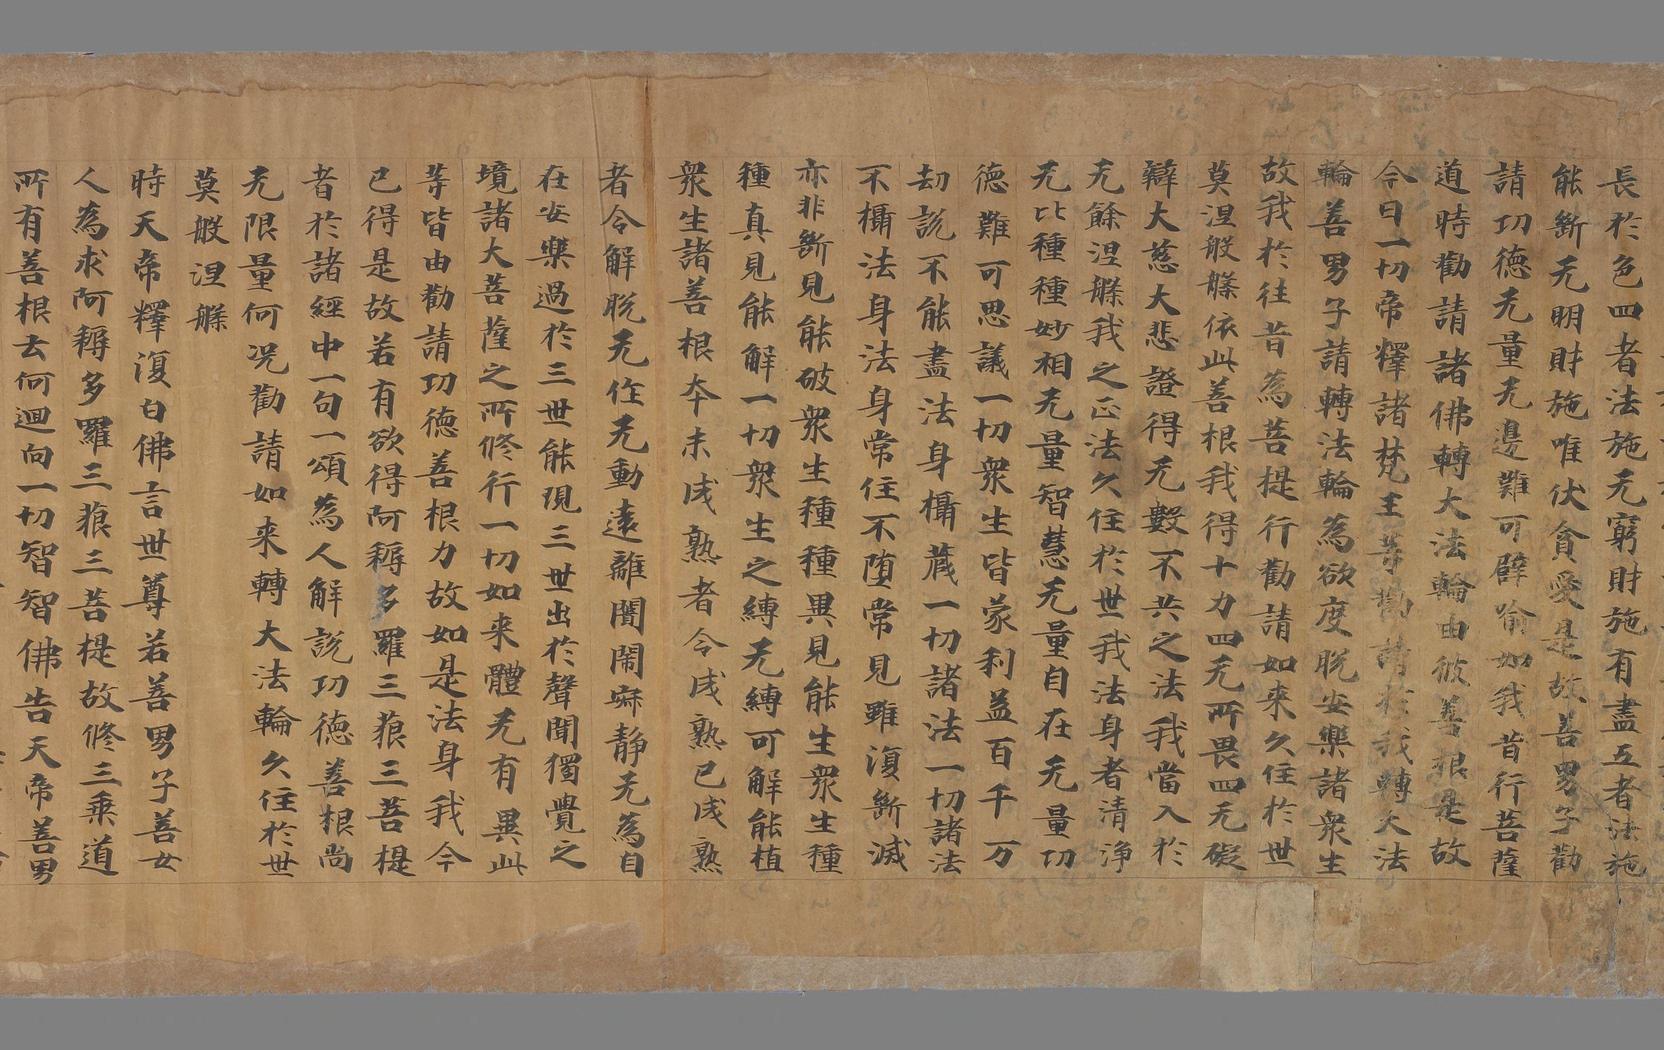 長於色四者法施无窮財施有盡五者法施
能斷无明財施唯伏貪愛是故善男子勸
請功德无量无邊難可譬喻如我昔行菩薩
道時勸請諸佛轉大法輪由彼善根是故
今日一切帝釋諸梵王等勸請於我轉大法
輪善男子請轉法輪為欲度脫安樂諸衆生
故我於往昔為菩提行勸請如来久住於世
莫涅般槃依此善根我得十力四无所畏四无礙
辯大慈大悲證得无數不共之法我當入於
无餘涅槃我之正法久住於世我法身者清淨
无比種種妙相无量智慧无量自在无量功
德難可思議一切衆生皆蒙利益百千万
劫說不能盡法身攝蔵一切諸法一切諸法
不攝法身法身常住不墮常見雖復斷滅
亦非斷見能破衆生種種異見能生衆生種
種真見能解一切衆生之縛无縛可解能植
衆生諸善根夲未成熟者令成熟已成熟
者令解脫无作无動遠離闇鬧寂靜无為自
在安樂過於三世能現三世出於聲聞獨覺之
境諸大菩薩之所修行一切如来體无有異此
等皆由勸請功德善根力故如是法身我今
已得是故若有欲得阿耨多羅三藐三菩提
者於諸經中一句一頌為人解說功德善根尚
无限量何況勸請如来轉大法輪久住於世
莫般涅槃
時天帝釋復白佛言世尊若善男子善女
人為求阿耨多羅三藐三菩提故修三乘道
所有善根去何迴向一切智智佛告天帝善男